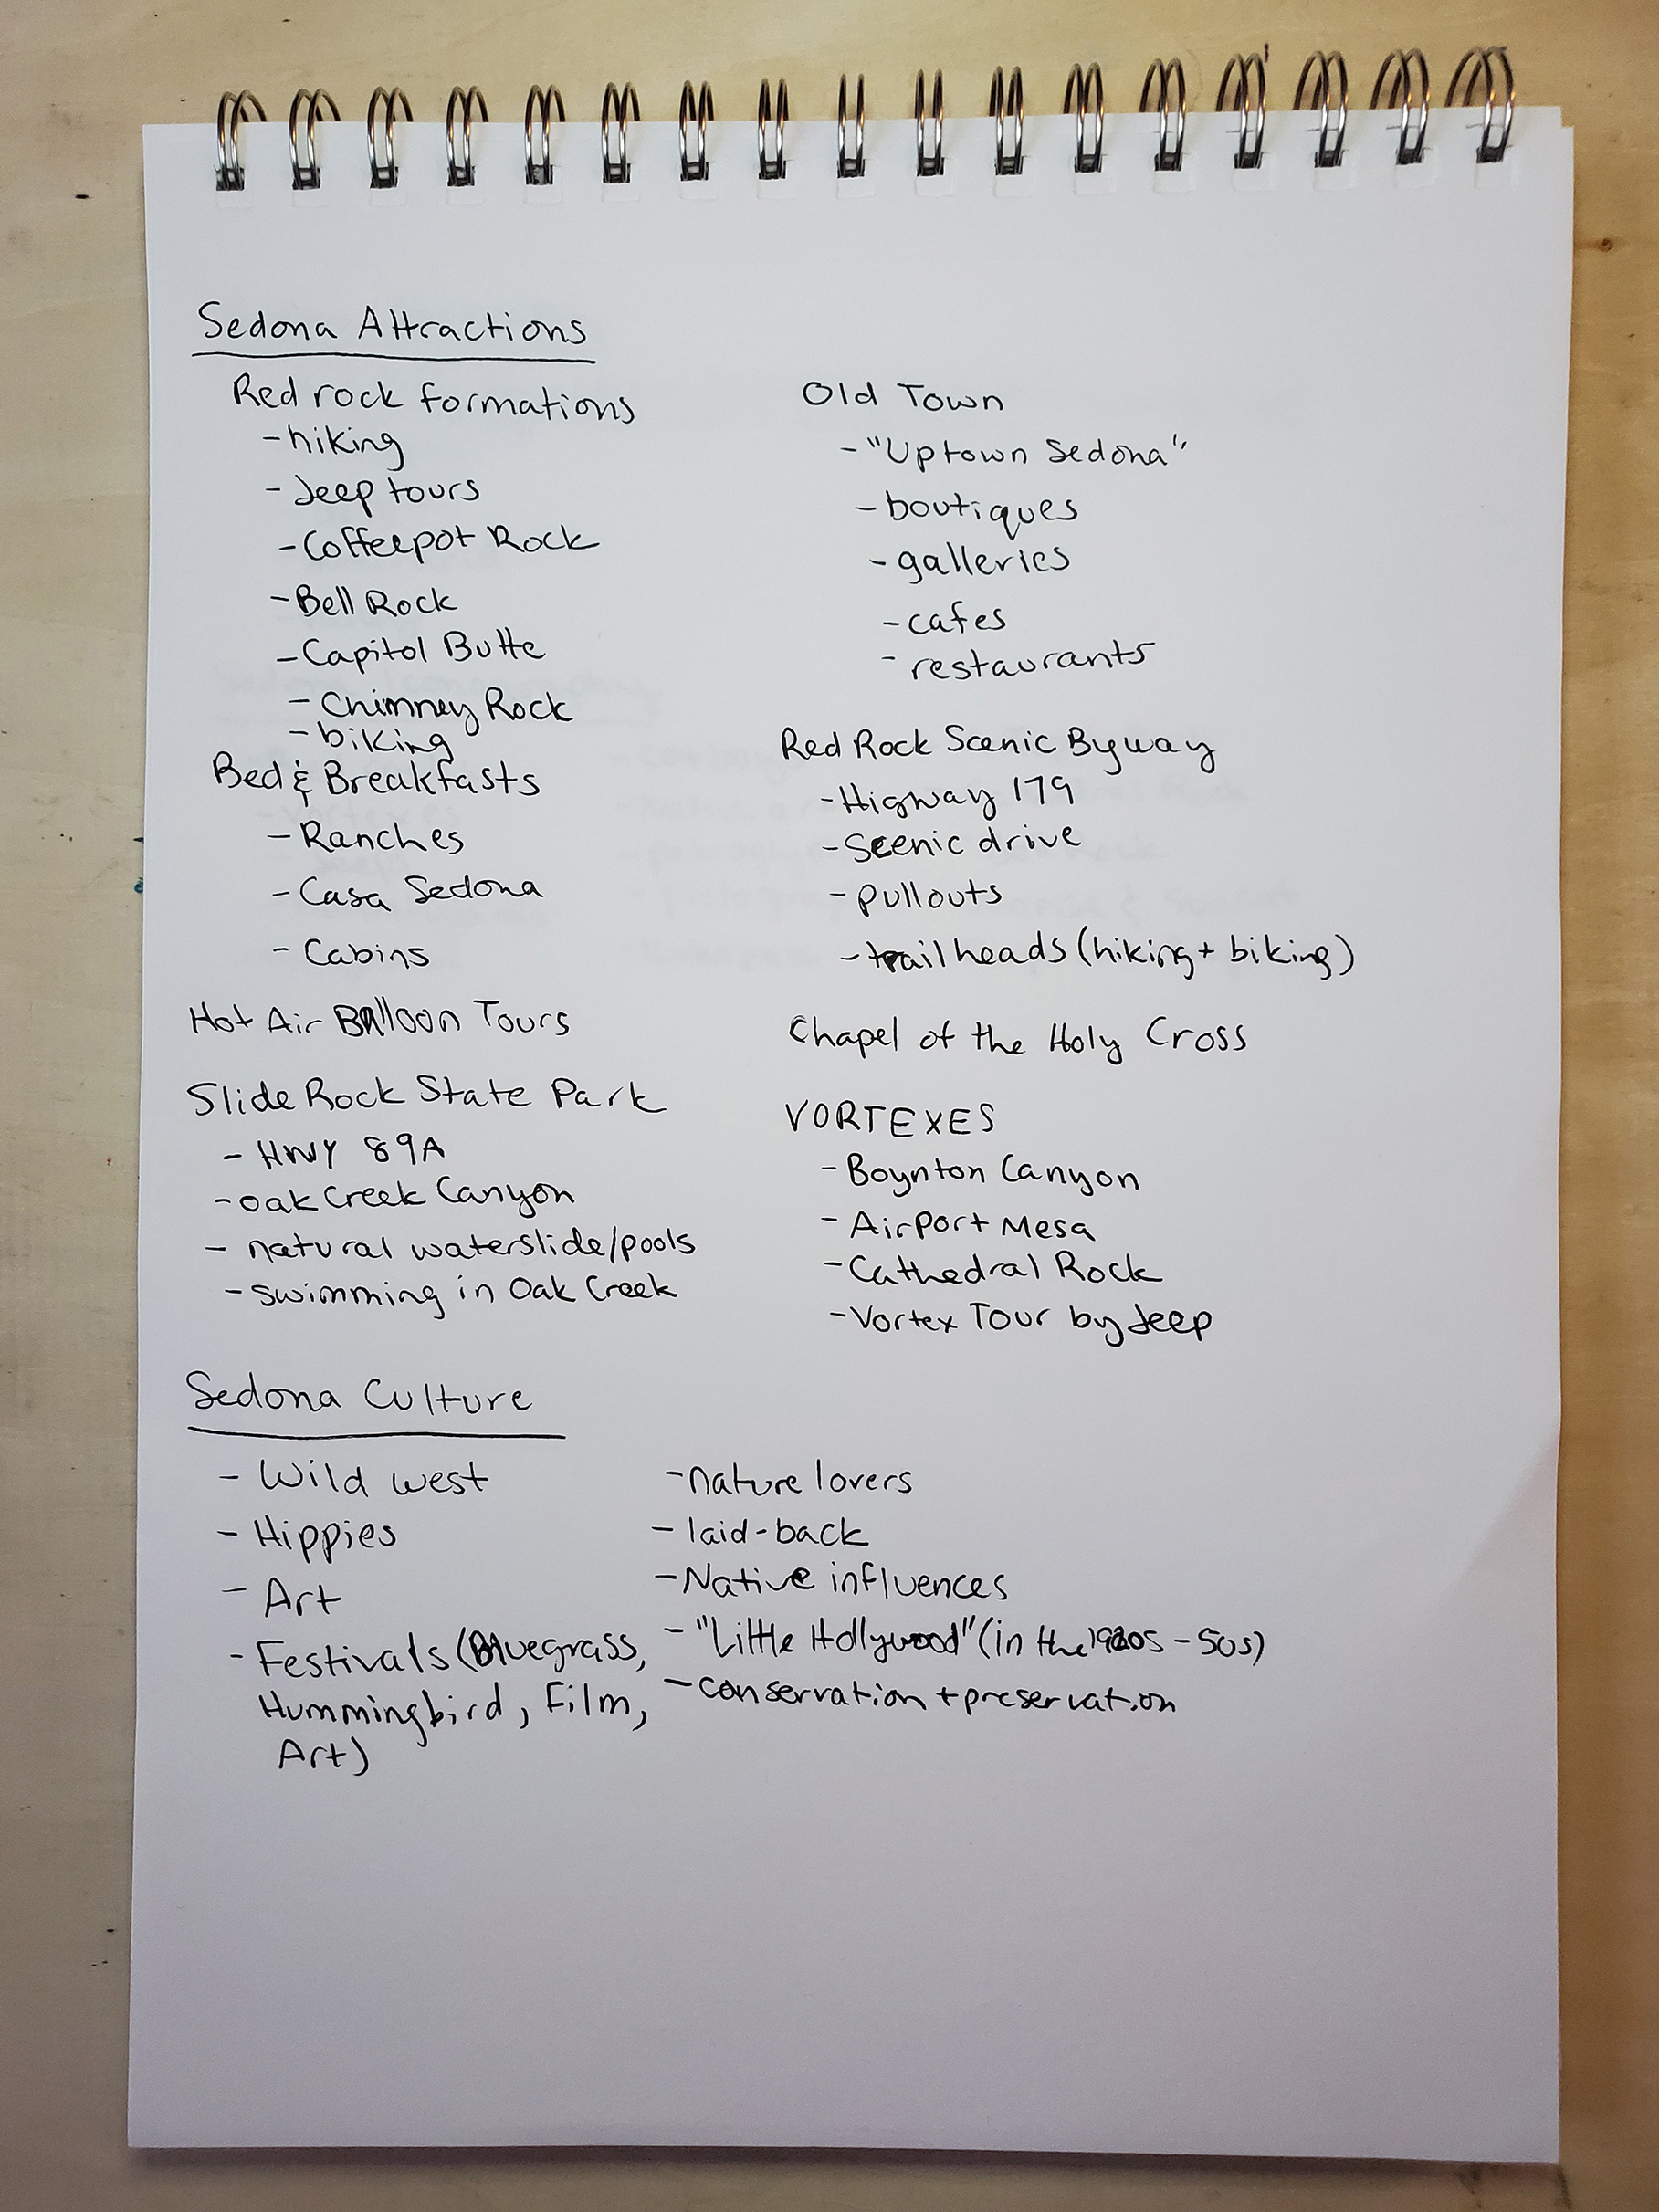 Sedona Attractions
Red rock formations
- hiking
- Jeep tours
- Coffeepot Rock
- Bell Rock
- Capitol Butte
- Chimney Rock
- biking
Bed & Breakfasts
- Ranches
- Casa Sedona
- Cabins
Hot Air Balloon Tours
Slide Rock State Park
- HWY 89A
- oak Creek Canyon
- natural waterslide/pools
- swimming in Oak Creek
Old Town
- "Uptown Sedona"
- boutiques
- galleries
- cafes
- restaurants
Red Rock Scenic Byway
- Higway 179
- Scenic drive
- pullouts
- trailheads (hiking + biking)
Chapel of the Holy Cross
VORTEXES
- Boynton Canyon
- Airport Mesa
- Cathedral Rock
- Vortex Tour by Jeep
Sedona Culture
- Wild west
- Hippies
- Art
- Festivals (Bluegrass,
Hummingbird, Film,
Art)
- nature lovers
- laid-back
- Native influences
- "Little Hollywood" (in the - 50s)
- conservation + preservation